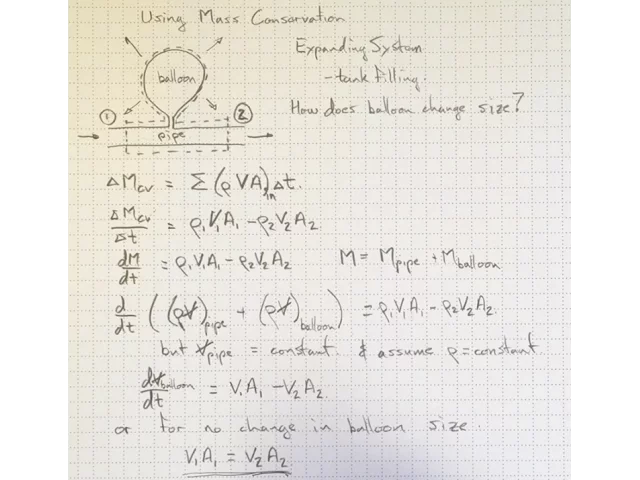 Using Mass Conservation
Expanding System
- tank filling.
How does balloon change size?
balloon
① ②
pipe
Δ M_cv = Σ (ρ V A)_in Δt.
Δ M_cv / Δt = ρ₁V₁A₁ - ρ₂V₂A₂
dM/dt = ρ₁V₁A₁ - ρ₂V₂A₂ M = M_pipe + M_balloon
d/dt ( (ρV̶)_pipe + (ρV̶)_balloon ) = ρ₁V₁A₁ - ρ₂V₂A₂.
but V̶_pipe = constant. & assume ρ = constant
dV̶_balloon / dt = V₁A₁ - V₂A₂.
or for no change in balloon size.
V₁A₁ = V₂A₂